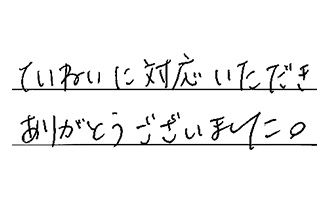 ていねいに対応いただき
ありがとうございました。